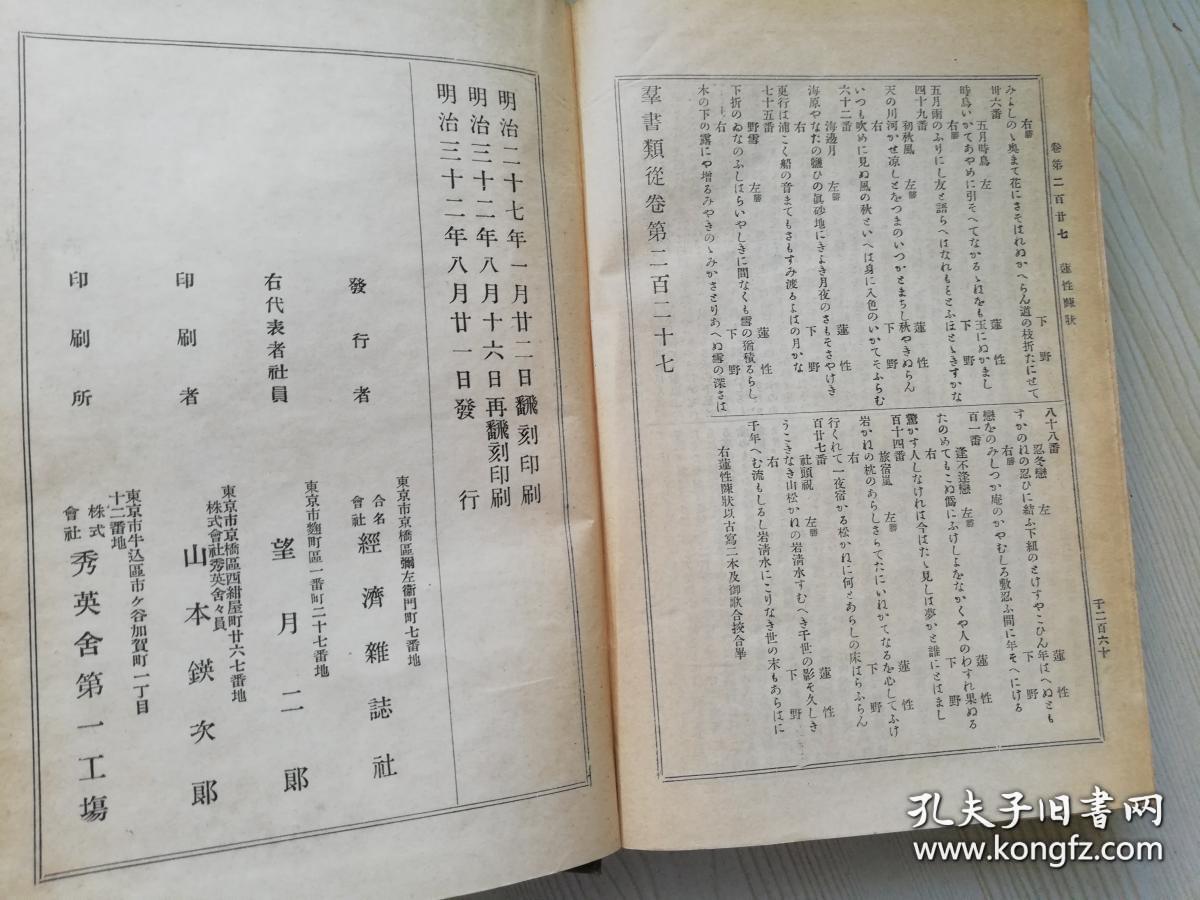 卷第二百廿七 蓮性陳狀
千二百六十
右勝 下野
みよしのゝ奥まて花にさそはれぬかへらん道の枝折たにせて
卅六番
五月時鳥 左 蓮性
時鳥いかてあやめに引そへてなかるゝねをも玉にぬかまし
右勝 下野
五月雨のふりにし友と語らへはなれもそとふほとゝきすかな
四十九番
初秋風 左勝 蓮性
天の川河かせ凉しとをつまのいつかとまちし秋やきぬらん
右 下野
いつも吹めに見ぬ風の秋といへは身に入色のいかてそふらむ
六十二番
海邊月 左勝 蓮性
海原やなたの鹽ひの眞砂地にきよき月夜のさもそさやけき
右 下野
更行は浦こく船の音まてもさもすみ渡るよはの月かな
七十五番
野雪 左勝 蓮性
下折のゐなのふしはらいやしきに間なくも雪の猶積るらし
右 下野
木の下の露にや増るみやきのゝみかさとりあへぬ雪の深さは
羣書類從卷第二百二十七
八十八番
忍冬戀 左 蓮性
すかのねの忍ひに結ふ下紐のとけすやこひん年はへぬとも
右勝 下野
戀をのみしつか庵のかやむしろ敷忍ふ間に年そへにける
百一番
逢不逢戀 左勝 蓮性
たのめてもこぬ僞にふけしよをなかくや人のわすれ果ぬる
右 下野
驚かす人しなけれは今はたゝ見しは夢かと誰にとはまし
百十四番
旅宿嵐 左勝 蓮性
岩かねの枕のあらしさらてたにいねかてなるを心してふけ
右 下野
行くれて一夜宿かる松かねに何とあらしの床はらふらん
百廿七番
社頭祝 左勝 蓮性
うこきなき山松かねの岩淸水すむへき千世の影そ久しき
右 下野
千年へむ流もしるし岩淸水にこりなき世の末もあらはに
右蓮性陳狀以古寫二本及御歌合挍合畢
明治二十七年一月廿二日飜刻印刷
明治三十二年八月十六日再飜刻印刷
明治三十二年八月廿一日發行
東京市京橋區彌左衞門町七番地
發行者 合名會社 經濟雜誌社
東京市麴町區一番町二十七番地
右代表者社員 望月二郞
東京市京橋區西紺屋町廿六七番地
株式會社秀英舍々員
印刷者 山本鍈次郞
東京市牛込區市ヶ谷加賀町一丁目
十二番地
印刷所 株式會社 秀英舍第一工塲
孔夫子旧书网
www.kongfz.com